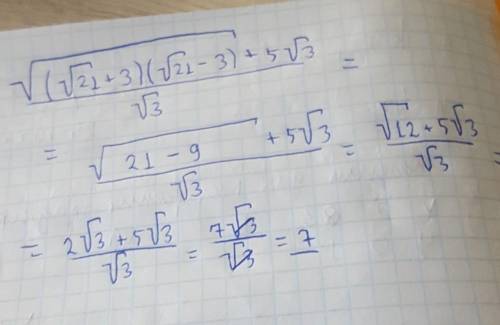 √((√21+3)(√21-3)) + 5√3 / √3 =
= √(21-9) + 5√3 / √3 = √12 + 5√3 / √3 =
= 2√3 + 5√3 / √3 = 7√3 / √3 = 7